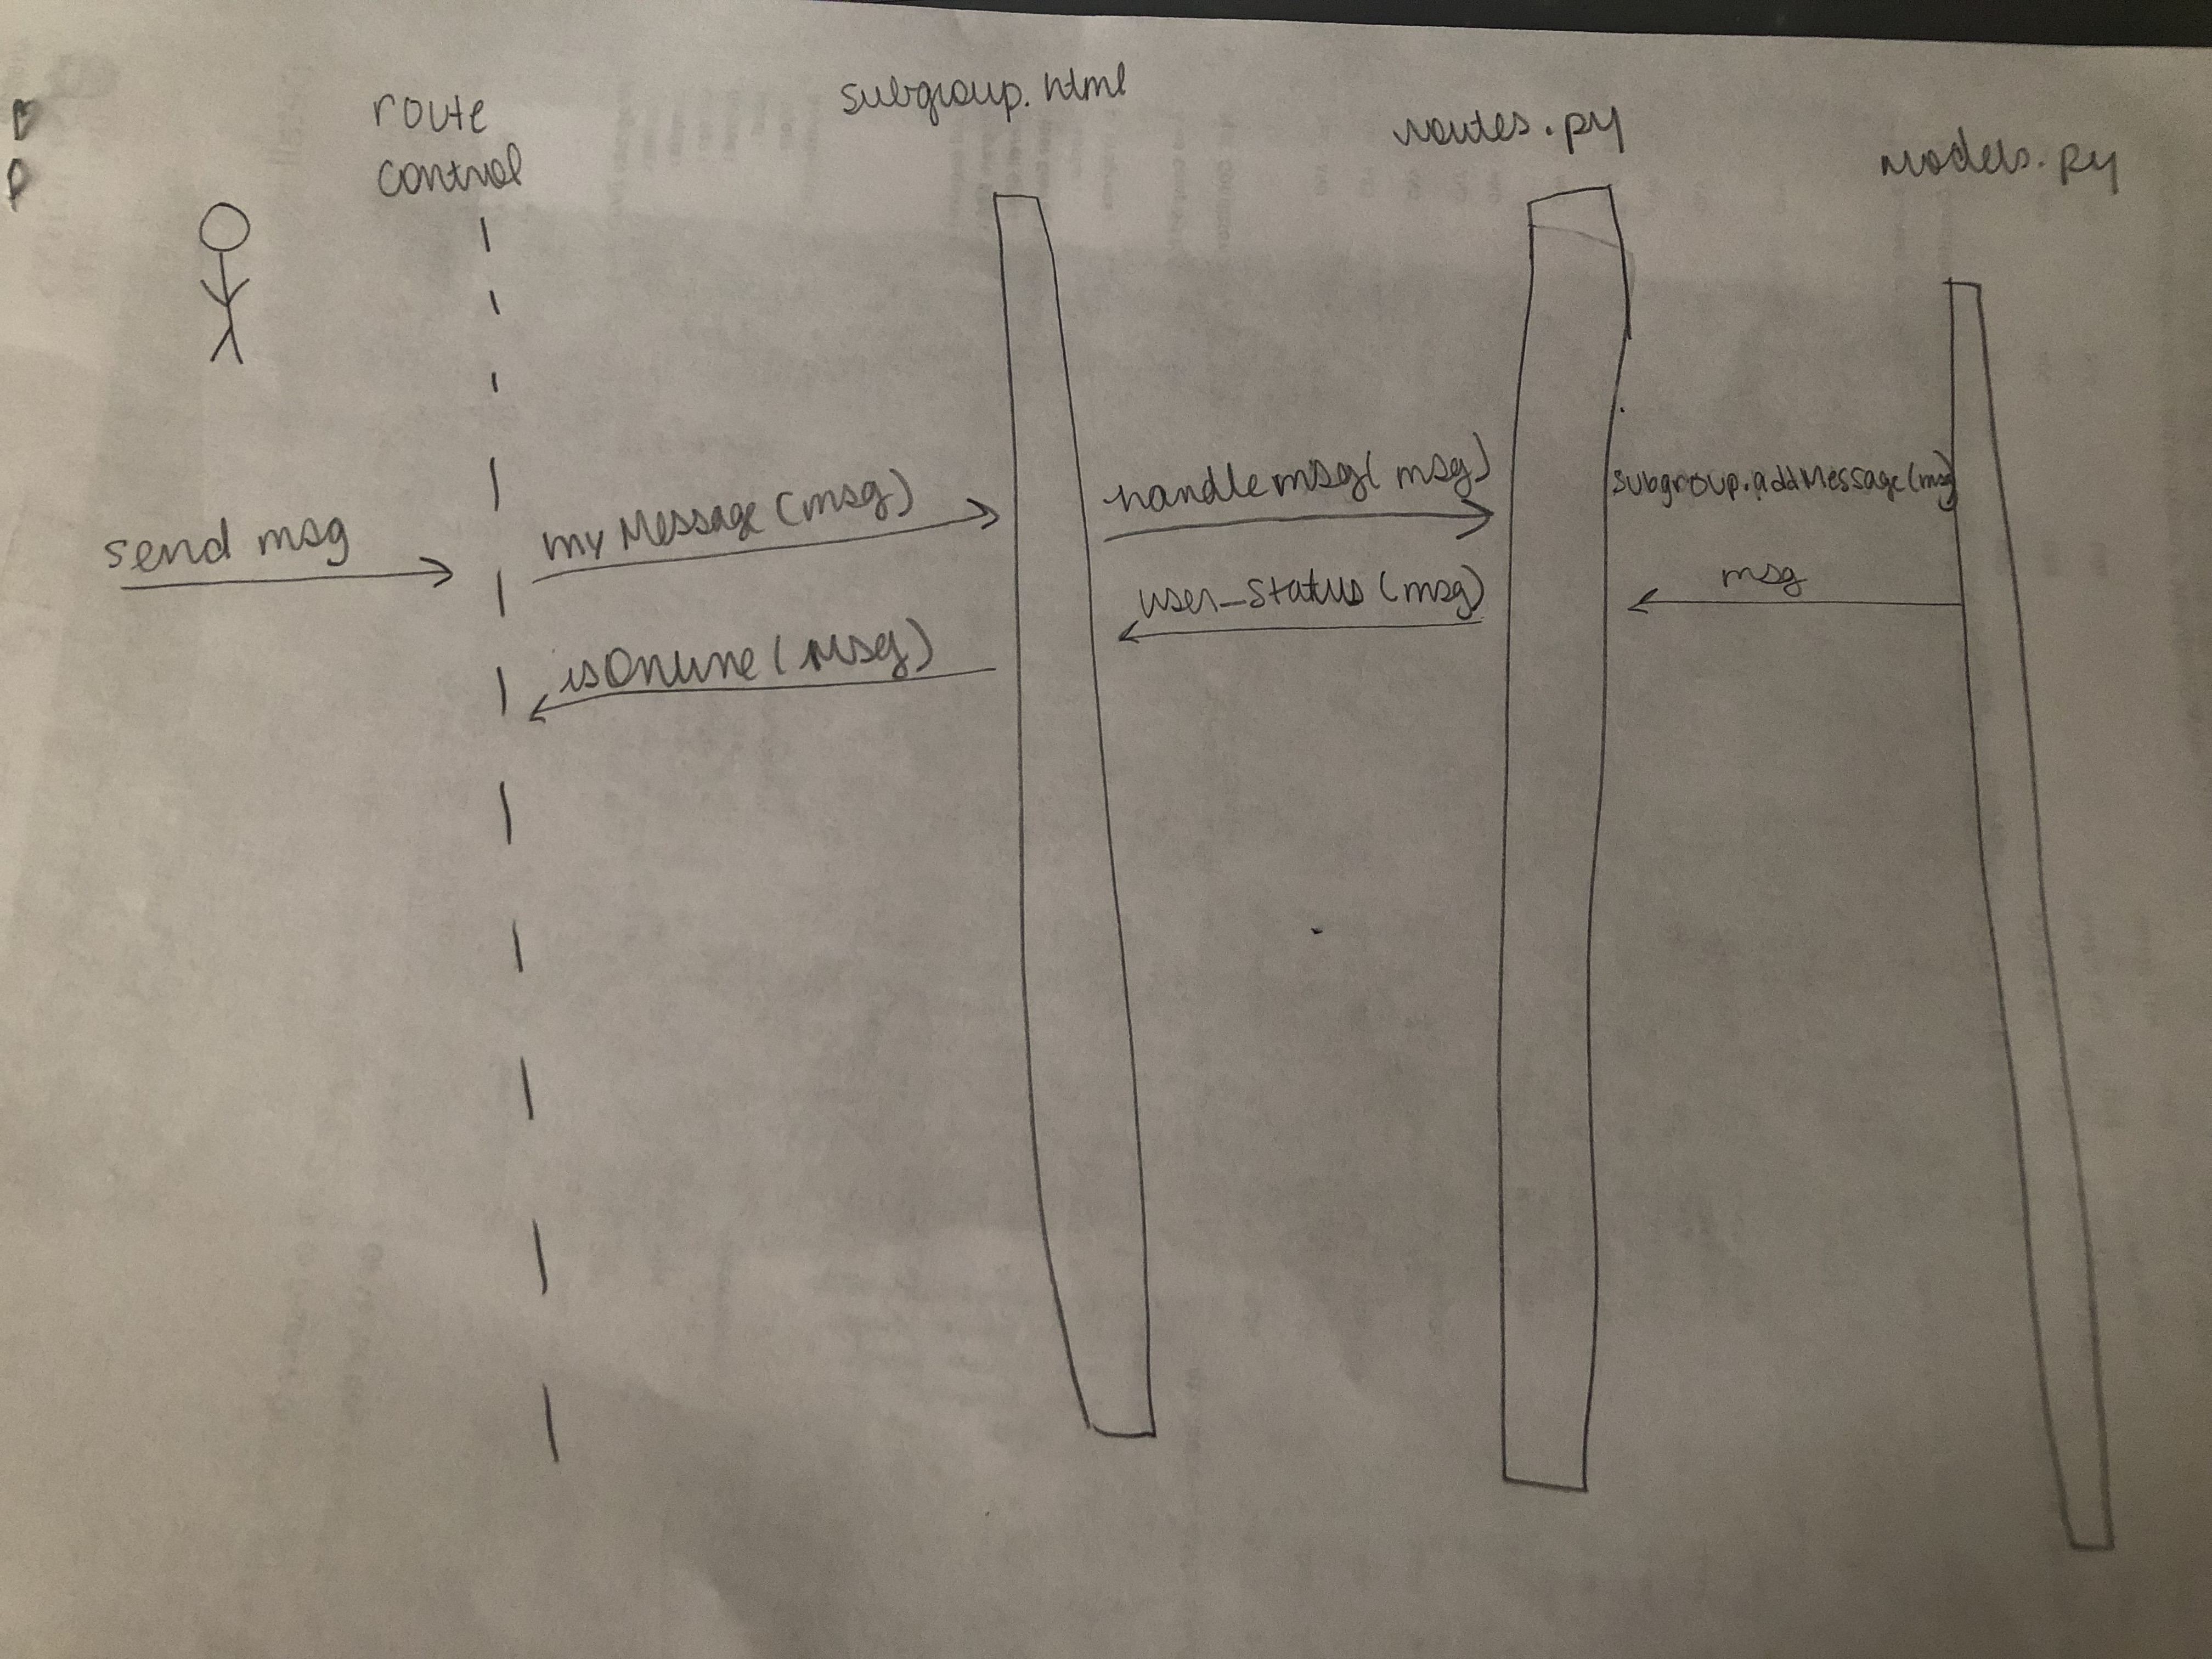 route
control
subgroup.html
routes.py
models.py
send msg
myMessage(msg)
handlemsg(msg)
subgroup.addMessage(msg)
isOnline(msg)
user_status(msg)
msg